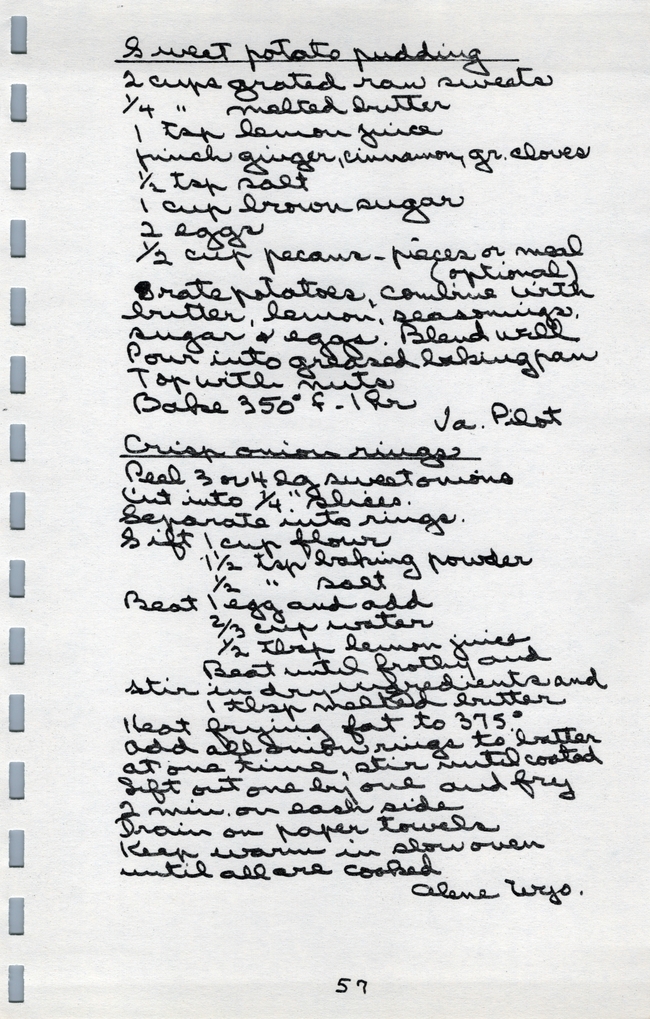 Sweet potato pudding
2 cups grated raw sweets
1/4 " melted butter
1 tsp lemon juice
pinch ginger, cinnamon, gr. cloves
1/2 tsp salt
1 cup brown sugar
2 eggs
1/2 cup pecans - pieces or meal
(optional)
Grate potatoes, combine with
butter, lemon, seasonings,
sugar & eggs. Blend well
Pour into greased baking pan
Top with nuts
Bake 350° F - 1 hr
Va. Pilot
Crisp onion rings
Peel 3 or 4 lg sweet onions
Cut into 1/4" slices.
Separate into rings.
Sift 1 cup flour
1 1/2 tsp baking powder
1/2 " salt
Beat 1 egg and add
2/3 cup water
1/2 tbsp lemon juice
Beat until frothy and
stir in dry ingredients and
1 tbsp melted butter
Heat frying fat to 375°
add all onion rings to batter
at one time, stir until coated
Lift out one by one and fry
2 min. on each side
Drain on paper towels
Keep warm in slow oven
until all are cooked
Alene Wyo.
57